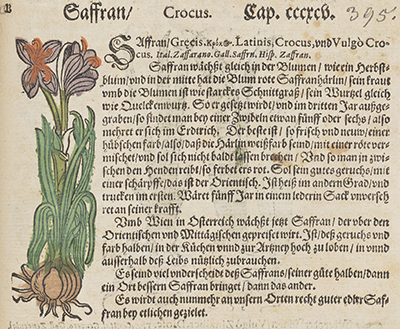 B
Saffran/ Crocus. Cap. cccxcv. 395.
SAffran/ Græcis. Κρόκ☉. Latinis, Crocus, vnd Vulgò Cro-
cus. Ital. Zaffarano. Gall. Saffrã. Hisp. Zaffran.
Saffran wächßt gleich in der Blumen/ wie ein Herbst-
blum/ vnd in der mitte hat die Blum rote Saffranhärlin/ sein kraut
vmb die Blumen ist wie starckes Schnittgraß/ sein Wurtzel gleich
wie Quelckenwurtz. So er gesetzt wird/ vnd im dritten Jar außge-
graben/ so findet man bey einer Zwibeln etwan fünff oder sechs/ also
mehret er sich im Erdtrich. Der best ist/ so frisch vnd neuw/ einer
hübschen farb/ also/ daß die Härlin weißfarb seind/ mit der röte ver-
mischet/ vnd sol sich nicht baldt lassen brechen/ Vnd so man jn zwi-
schen den Henden reibt/ so ferbet er rot. Sol sein gutes geruchs/ mit
einer schärpffe/ das ist der Orientisch. Ist heiß im andern Grad/ vnd
trucken im ersten. Wäret fünff Jar in einem ledern Sack vnverseh-
ret an seiner krafft.
Vmb Wien in Osterreich wächßt jetzt Saffran/ der vber den
Orientischen vnd Mittägischen gepreiset wirt. Ist/ deß geruchs vnd
farb halben/ in der Küchen vnnd zur Artzney hoch zu loben/ in vnnd
ausserhalb deß Leibs nützlich zubrauchen.
Es seind viel vnderscheid deß Saffrans/ seiner güte halben/ dann
ein Ort bessern Saffran bringet/ dann das ander.
Es wirdt auch nunmehr an vnsern Orten recht guter edler Saf-
fran bey etlichen gezielet.